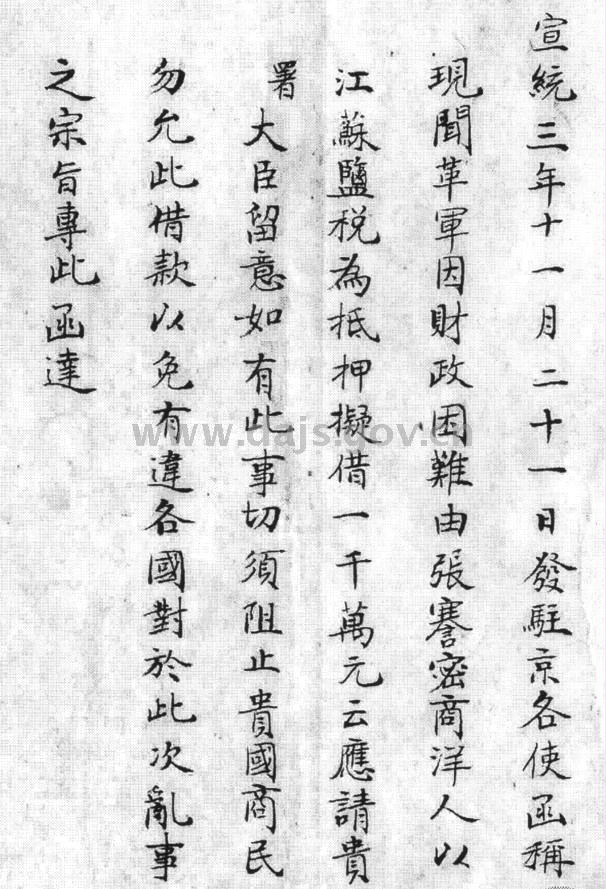 宣統三年十一月二十一日發駐京各使函稱
現聞革軍因財政困難由張謇密商洋人以
江蘇鹽税為抵押擬借一千萬元云應請貴
署大臣留意如有此事切須阻止貴國商民
勿允此借款以免有違各國對於此次亂事
之宗旨專此函達
www.dajs.gov.cn